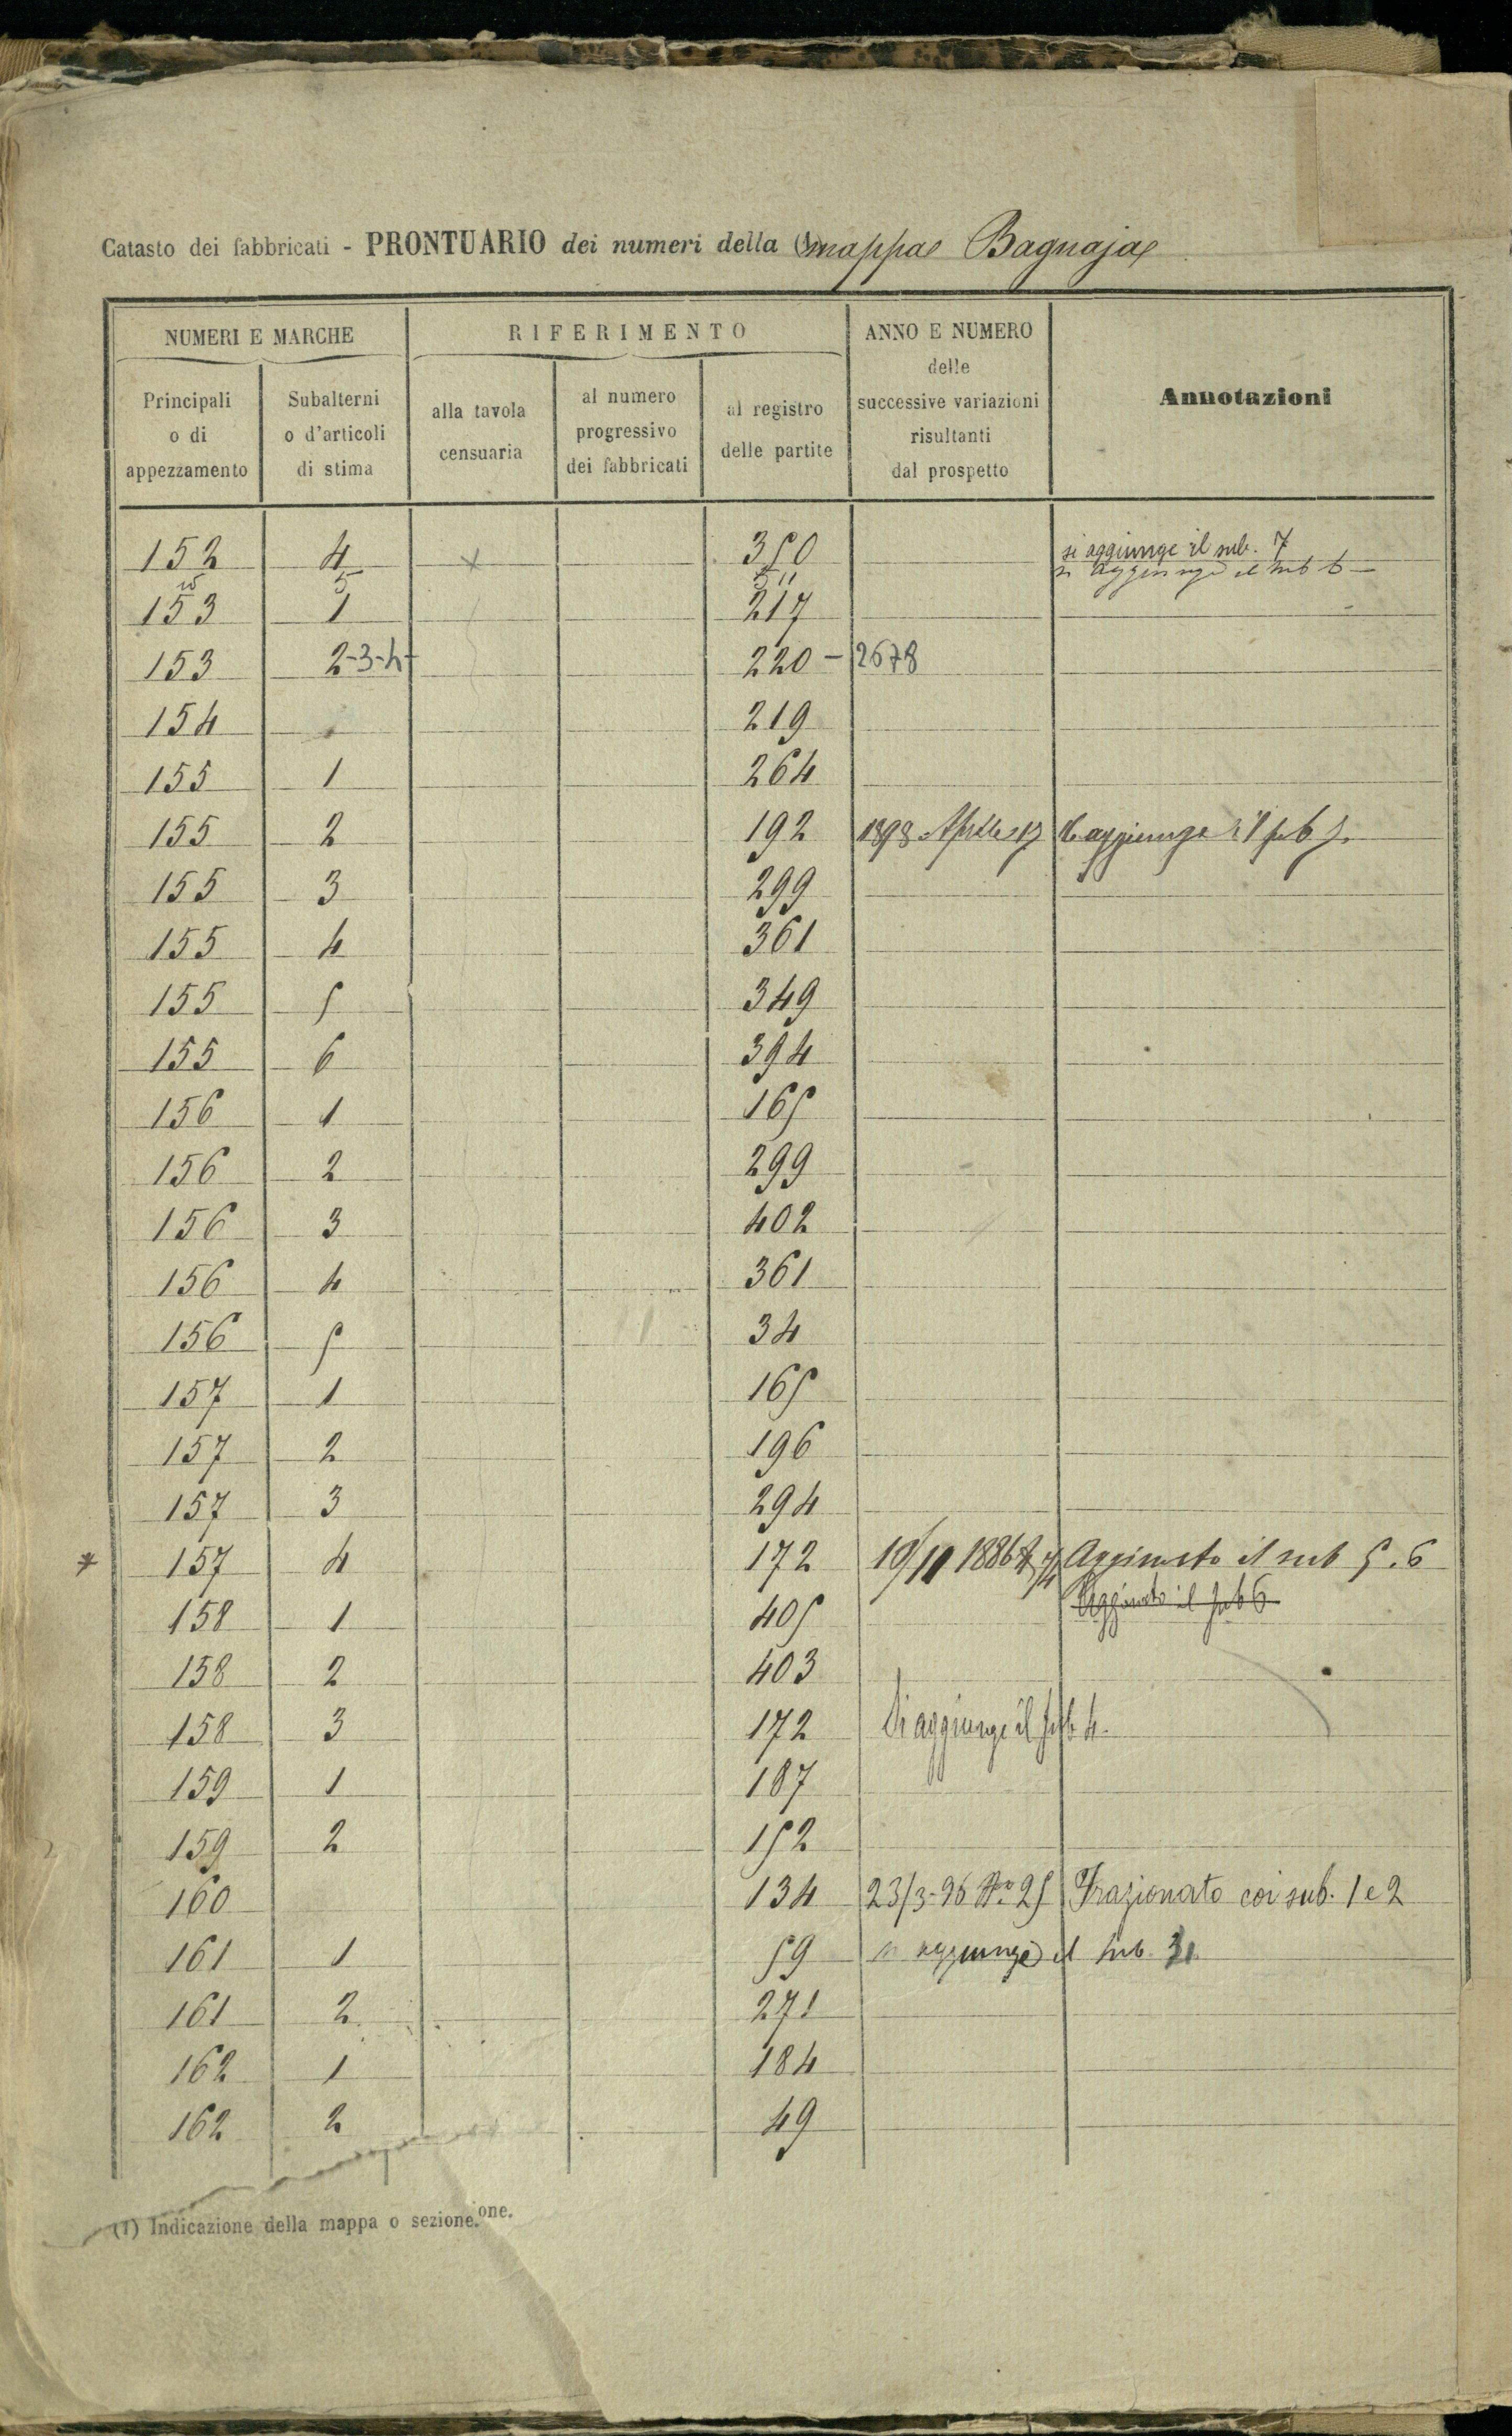 Catasto dei fabbricati - PRONTUARIO dei numeri della (1) mappa Bagnaja
NUMERI E MARCHE
RIFERIMENTO
ANNO E NUMERO
delle
successive variazioni
risultanti
dal prospetto
Annotazioni
Principali
o di
appezzamento
Subalterni
o d'articoli
di stima
alla tavola
censuaria
al numero
progressivo
dei fabbricati
al registro
delle partite
152 4 350 si aggiunge il sub. 7
5 511 si aggiunge il sub 6
153 1 217
153 2-3-4 220 - 2678
154 219
155 1 264
155 2 192 1898 Aprile Si aggiunge il sub 7.
155 3 299
155 4 361
155 5 349
155 6 394
156 1 165
156 2 299
156 3 402
156 4 361
156 5 34
157 1 165
157 2 196
157 3 294
* 157 4 172 19/11 1886 Aggiunto il sub 5. 6
Aggiunto il sub 6
158 1 405
158 2 403
158 3 172 Si aggiunge il sub 4.
159 1 187
159 2 152
160 134 23/3-96 No 25 Frazionato coi sub. 1 e 2
161 1 59 si aggiunge il sub 3
161 2 271
162 1 184
162 2 49
(1) Indicazione della mappa o sezione. one.